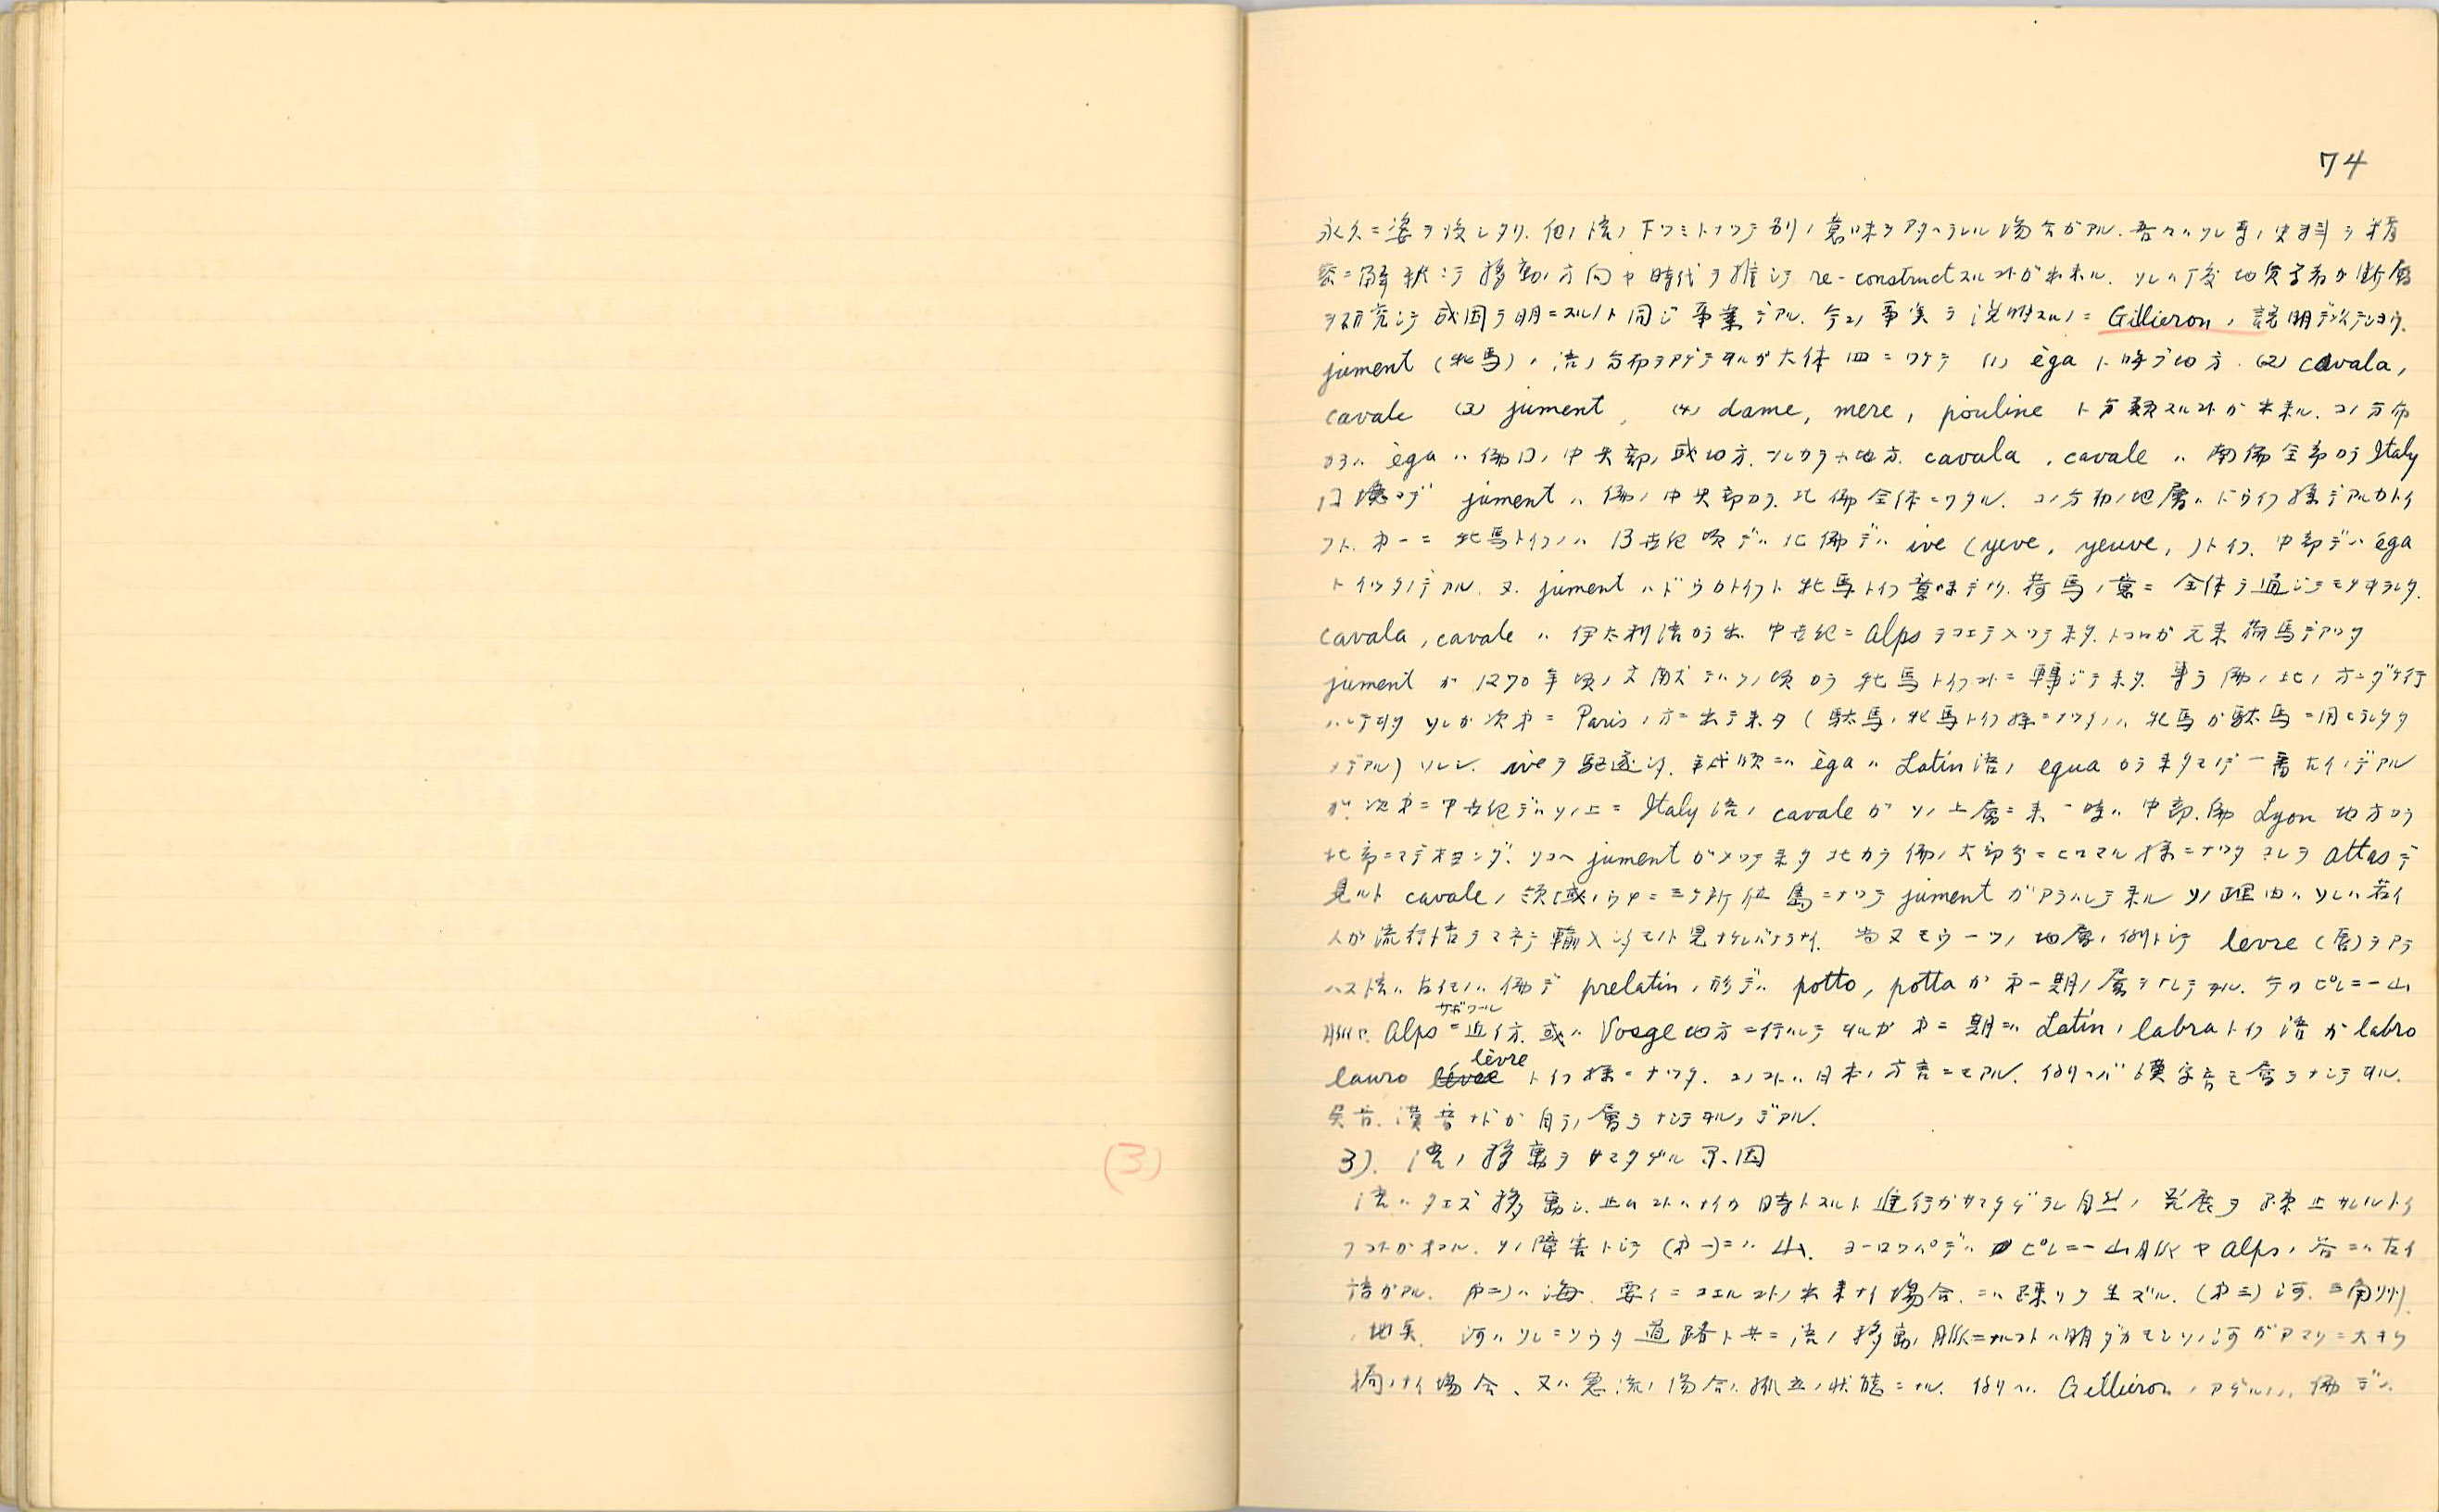 74
永久ニ姿ヲ没シタリ. 他ノ語ノ下ヅミトナツテ別ノ意味ヲアタヘラレル場合ガアル. 吾々ハソレ等ノ史料ヲ精
密ニ解釈シテ移動ノ方向ヤ時代ヲ推シテ re-constructスルコトガ出来ル. ソレハ丁度地質学者ガ断層
ヲ研究シテ成因ヲ明ニスルノト同ジ事業デアル. 今コノ事実ヲ説明スルノニ Gillieron ノ説明デ
jument (牝馬) ノ語ノ分布ヲアゲテヰルガ大体四ニワケテ (1) èga ト呼ブ地方. (2) cavala,
cavale (3) jument, (4) dame, mere, pouline ト分類スルコトガ出来ル. コノ分布
カラハ èga ハ佛国ノ中央部ノ或地方. cavala, cavale ハ南佛全部カラ Italy
国境マデ jument ハ佛ノ中央部カラ北佛全体ニワタル. コノ分布ノ地層ハドウイフ様デアルカトイ
フト. 第一ニ牝馬トイフノハ 13世紀頃デハ北佛デハ ive (yeve, yeuve,)トイフ. 中部デハ èga
トイツタノデアル. 又. jument ハドウカトイフト牝馬トイフ意味デナク. 荷馬ノ意ニ全体ヲ通ジテモチヰラレタ.
cavala, cavale ハ伊太利語カラ出. 中世紀ニ Alps ヲコエテ入ツテ来タ. トコロガ元来荷馬デアツタ
jument ガ 1270年頃ノ文献デハソノ頃カラ牝馬トイフコトニ轉ジテ来タ. 専ラ佛ノ北ノ方ニダケ行
ハレテヰタソレガ次第ニ Paris ノ方ニ出テ来タ (駄馬ガ牝馬トイフ様ニナツタノハ牝馬ガ駄馬ニ用ヒラレタタ
メデアル) ソレシ. iveヲ駆逐シタ. èga ハ Latin語ノ equa カラ来タモノデ一番古イノデアル
ガ. 次第ニ中世紀デハソノ上ニ Italy語ノ cavale ガソノ上層ニ来一時ハ中部. 佛 Lyon 地方カラ
北部ニマデオヨンダ. ソコヘ jument ガ入ツテ来タ北カラ佛ノ大部分ニヒロマル様ニナツタコレヲ attasデ
見ルト cavale ノ領域ノウチニ三ケ所位島ニナツテ jument ガアラハレテ来ルソノ理由ハソレハ若イ
人ガ流行語ヲマネテ輸入シタモノト見ナケレバナラナイ. 尚又モウ一ツノ地層ノ例トシテ levre (唇)ヲアラ
ハス語ハ古代ノハ佛デ prelatin ノ形デハ potto, potta ガ第一期ノ層ヲナシテヰル. 今ハピレニー山
脈ヤ. Alps ニ近イ方. 或ハ Vosge地方ニ行ハレテヰルガ第二期ニハ Latin ノ labraトイフ語ガ labro
lauro lèvre トイフ様ニナツタ. コノコトハ日本ノ方言ニモアル. 例ヘバ漢字音モ層ヲナシテヰル.
呉音. 漢音ナドガ自ラノ層ヲナシテヰルノデアル.
(3)
3). 語ノ移動ヲサマタゲル原因
語ハタエズ移動シ. 止ムコトハナイガ時トスルト進行ガサマタゲラレ自然ノ発展ヲ阻止サレルトイ
フコトガオコル. ソノ障害トシテ (第一)ニハ山. ヨーロツパデハピレニー山脈ヤ Alps ノ谷ニハ古イ
語ガアル. (第二)ハ海. 容イニコエルコトノ出来ナイ場合. ニハ疎リヲ生ズル. (第三)河. 三角州.
ノ地質. 河ハソレニソウタ道路ト共ニ語ノ移動ノ脈ニナルコトハ明ダガモシソノ河ガアマリニ大キク
橋ノナイ場合、又ハ急流ノ場合ハ孤立ノ状態ニナル. 例ヘバ Gillieron ノアゲルノハ. 佛デハ